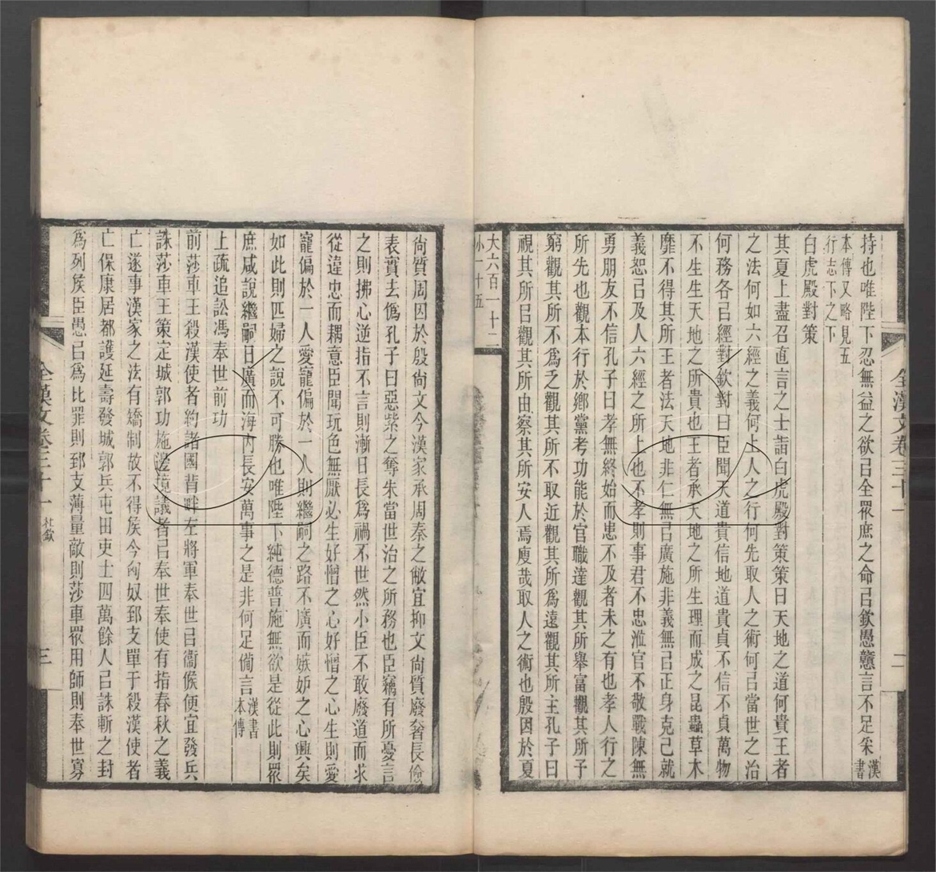 持也唯陛下忍無益之欲㠯全眾庶之命㠯欽愚戇言不足采漢書
本傳又略見五行志下之下
白虎殿對策
其夏上盡召直言之士詣白虎殿對策策曰天地之道何貴王者
之法何如六經之義何上人之行何先取人之術何㠯當世之治
何務各㠯經對欽對曰臣聞天道貴信地道貴貞不信不貞萬物
不生生天地之所貴也王者承天地之所生理而成之昆蟲草木
靡不得其所王者法天地非仁無㠯廣施非義無㠯正身克己就
義恕㠯及人六經之所上也不孝則事君不忠涖官不敬戰陳無
勇朋友不信孔子曰孝無終始而患不及者未之有也孝人行之
所先也觀本行於鄉黨考功能於官職達觀其所舉富觀其所予
窮觀其所不為乏觀其所不取近觀其所為遠觀其所主孔子曰
視其所㠯觀其所由察其所安人焉廋哉取人之術也殷因於夏
大六百一十二
小一十五
尙質周因於殷尙文今漢家承周秦之敝宜抑文尙質廢奢長儉
表實去僞孔子曰惡紫之奪朱當世治之所務也臣竊有所憂言
之則拂心逆指不言則漸日長為禍不世然小臣不敢廢道而求
從違忠而耦意臣聞玩色無厭必生好憎之心好憎之心生則愛
寵偏於一人愛寵偏於一人則繼嗣之路不廣而嫉妒之心興矣
如此則匹婦之說不可勝也唯陛下純德普施無欲是從此則眾
庶咸說繼嗣日廣而海內長安萬事之是非何足備言漢書本傳
上疏追訟馮奉世前功
前莎車王殺漢使者約諸國背畔左將軍奉世㠯衞候便宜發兵
誅莎車王策定城郭功施邊境議者㠯奉世奉使有指春秋之義
亡遂事漢家之法有矯制故不得侯今匈奴郅支單于殺漢使者
亡保康居都護延壽發城郭兵屯田吏士四萬餘人㠯誅斬之封
為列侯臣愚㠯為比罪則郅支薄量敵則莎車眾用師則奉世寡
全漢文卷三十一
二
全漢文卷三十一
杜欽
三